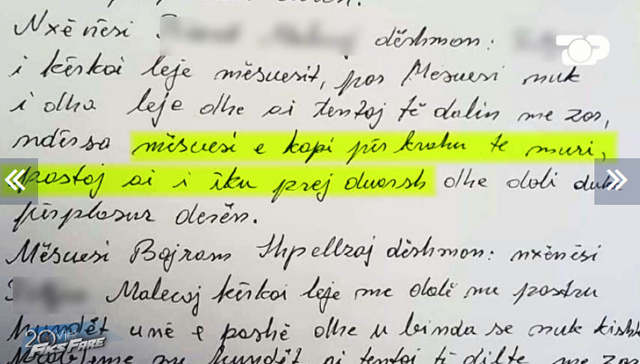 Nxënësi dëshmon:
i kërkoi leje mësuesit, por Mësuesi nuk
i dha leje dhe ai tentoj të dalin me zor,
ndërsa mësuesi e kapi për krahu te muri,
prastaj ai i iku prej duarsh dhe doli duke
përplasur derën.
Mësuesi Bajram Shpellzaj dëshmon: nxënësi
Malecaj kërkoi leje me dalë me pastru
hundët unë e pashë dhe u binda se nuk kisht
probleme me hundët ai tentoj të dilte me zor
TOP
20 VITE
FIKS FARE